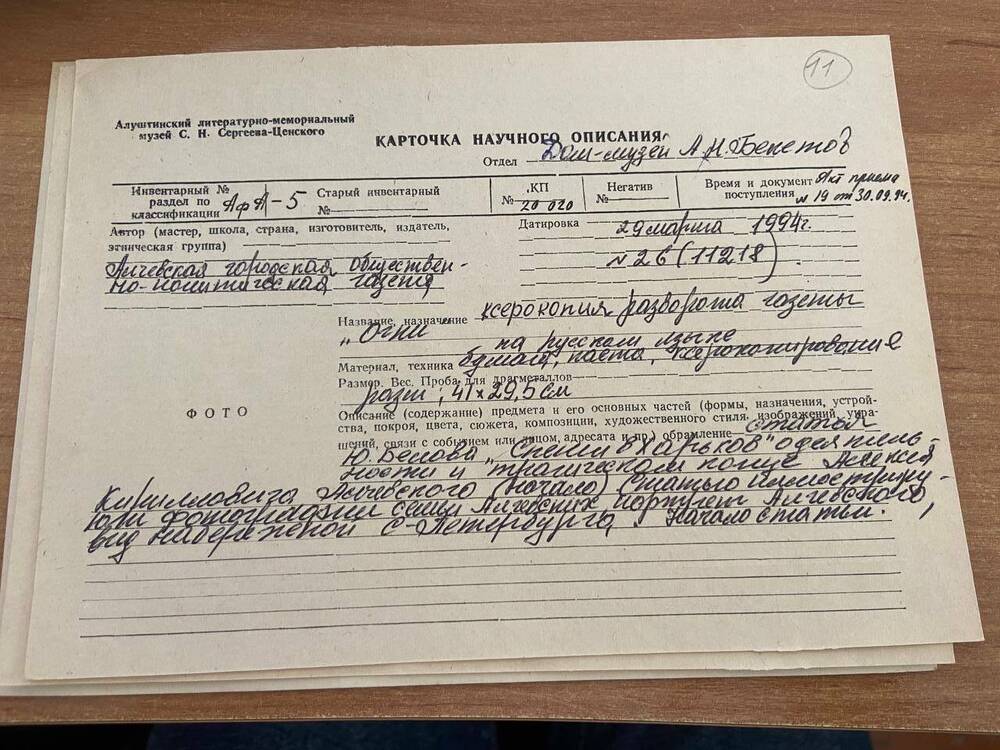 11
Алуштинский литературно-мемориальный
музей С. Н. Сергеева-Ценского
КАРТОЧКА НАУЧНОГО ОПИСАНИЯ
Отдел Дом-музей А.Н Бекетов
Инвентарный №
раздел по
классификации АфА-5
Старый инвентарный
№
КП
№ 20 020
Негатив
№
Время и документ Акт приема
поступления № 19 от 30.09.94.
Автор (мастер, школа, страна, изготовитель, издатель,
этническая группа)
Алчевская городская обществен-
но-политическая газета
Датировка 29 марта 1994г.
№ 26 (11218)
Название, назначение ксерокопия разворота газеты
„Огни" на русском языке
Материал, техника бумага, паста, ксерокопирование
Размер. Вес. Проба для драгметаллов
разм; 41 х 29,5 см
ФОТО
Описание (содержание) предмета и его основных частей (формы, назначения, устрой-
ства, покроя, цвета, сюжета, композиции, художественного стиля, изображений, укра-
шений, связи с событием или лицом, адресата и пр.) обрамление статья
Ю. Белова „Спешил в Харьков" о деятель-
ности и трагическом конце Алексея
Кирилловича Алчевского (начало) Статью иллюстриру-
ют фотографии семьи Алчевских портрет Алчевского,
вид набережной С-Петербурга, Начало статьи.